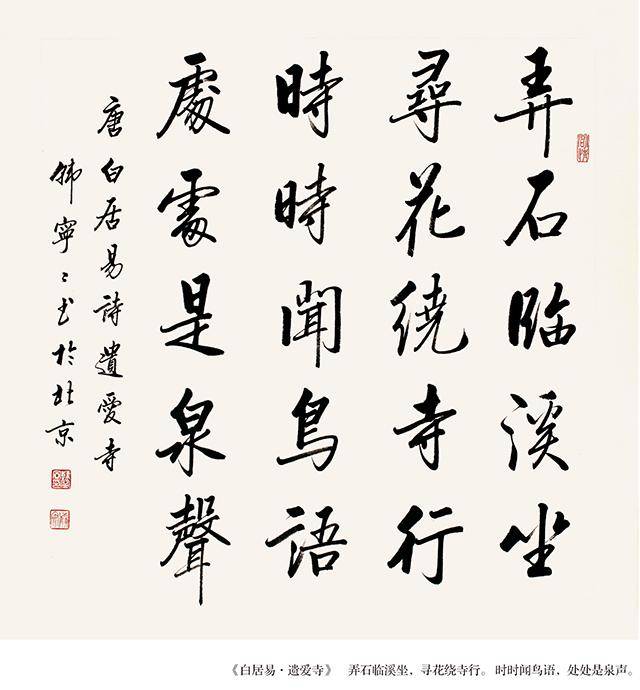 弄石临溪坐
尋花繞寺行
時時聞鳥語
處處是泉聲
唐白居易詩遺愛寺
韩寧寧书於北京
《白居易·遗爱寺》 弄石临溪坐，寻花绕寺行。 时时闻鸟语，处处是泉声。